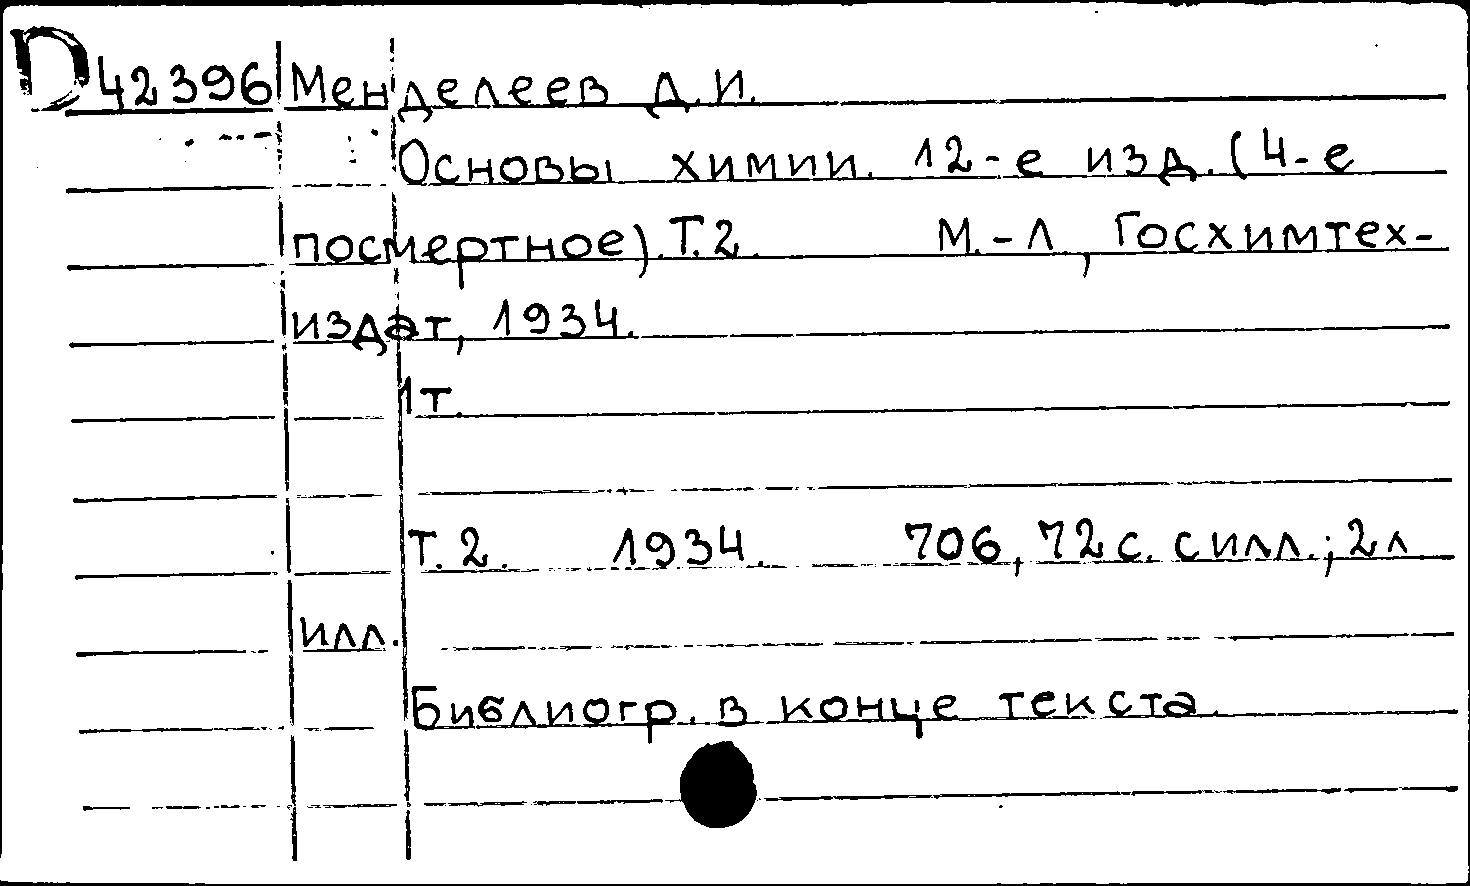 D 42396 Менделеев Д.И.
Основы химии. 12-е изд. (4-е
посмертное). Т.2. М.-Л, Госхимтех-
издат, 1934.
1т.
Т.2. 1934. 706, 72с. с илл.; 2л
илл.
Библиогр. в конце текста.